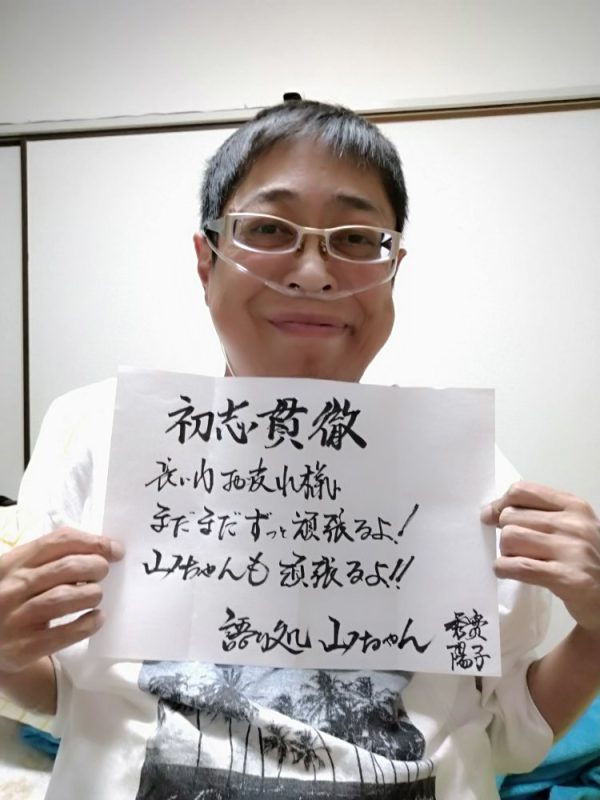 初志貫徹
長い間お疲れ様
まだまだずっと頑張るよ!
山ちゃんも頑張るよ!!
語り処 山ちゃん
陽子